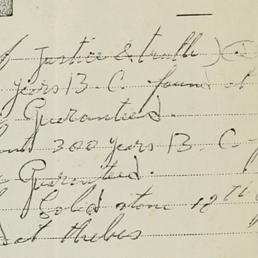 of Justice & truth) (
years B. C. found at
Guarantied.
300 years B. C.
Guarantied.
Gold stone 12
at thebes